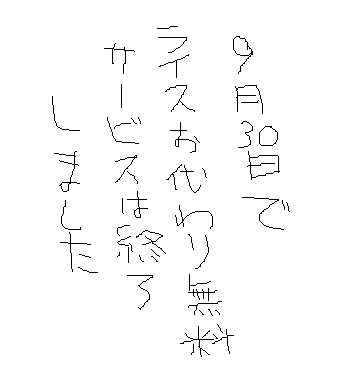 9月30日で
ライスお代わり無料
サービスは終了
しました